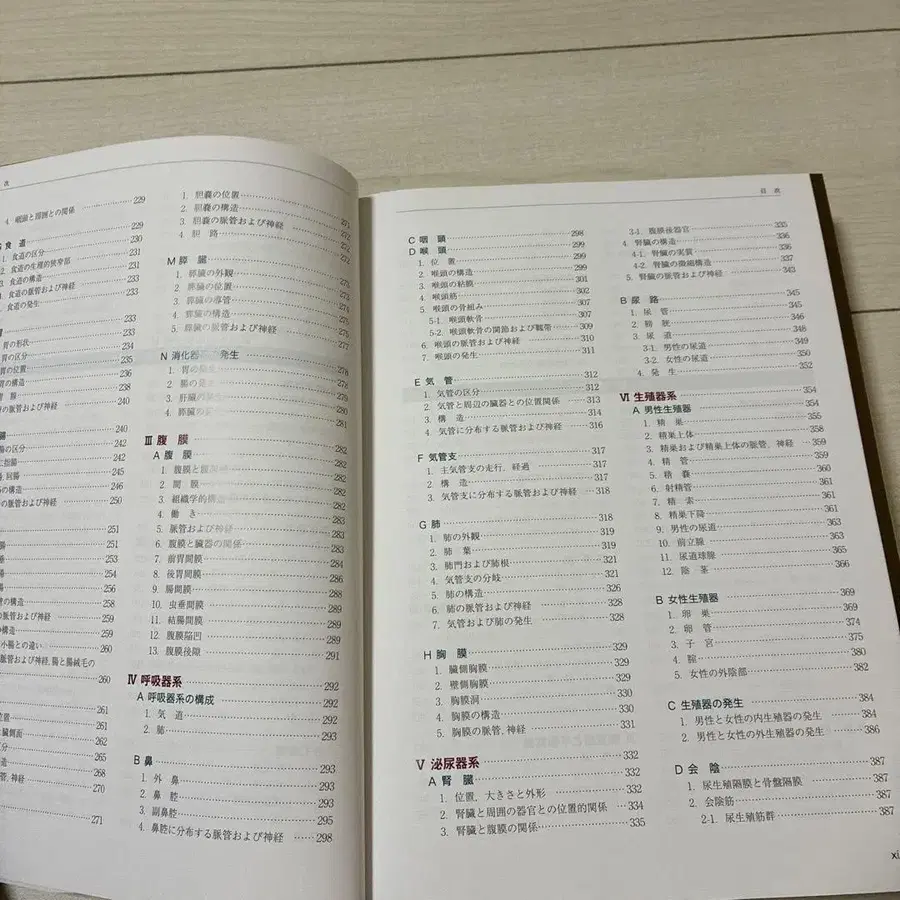 次
4. 咽頭と周囲との関係 229
食道 229
1. 食道の区分 230
2. 食道の生理的狭窄部 231
3. 食道の構造 233
4. 食道の脈管および神経 233
食道の発生
233
胃の形状 234
胃の区分 235
胃の位置 236
胃の構造 238
胃の脈管および神経 240
腸
腸の区分 242
二指腸 242
回腸 245
の構造 246
の脈管および神経 250
251
腸 251
253
腸 254
256
の構造 258
の脈管および神経 259
の構造 259
小腸との違い
脈管および神経, 腸と腸絨毛の
260
261
位置 261
臓側面 262
区分 265
構造 268
管, 神経 270
271
1. 胆嚢の位置 271
2. 胆嚢の構造
3. 胆嚢の脈管および神経
4. 胆路 272
M 膵臓
1. 膵臓の外観
2. 膵臓の位置 273
3. 膵臓の導管 275
4. 膵臓の構造 275
5. 膵臓の脈管および神経 277
N 消化器 発生 278
1. 胃の発生 278
2. 腸の発生
3. 肝臓の発生 280
4. 膵臓の発生 281
Ⅲ 腹膜 282
A 腹膜 282
1. 腹膜と腹膜 282
2. 間膜 282
3. 組織学的構造 282
4. 働き 283
5. 脈管および神経 283
6. 腹膜と臓器の関係 283
7. 前胃間膜 284
8. 後胃間膜 286
9. 腸間膜 288
10. 虫垂間膜 289
11. 結腸間膜 289
12. 腹膜陥凹 289
13. 腹膜後隙 291
Ⅳ 呼吸器系 292
A 呼吸器系の構成 292
1. 気道 292
2. 肺 293
B 鼻 293
1. 外鼻 293
2. 鼻腔 293
3. 副鼻腔 295
4. 鼻腔に分布する脈管および神経 298
目次
C 咽頭 298
D 喉頭 299
1. 位置 299
2. 喉頭の構造 299
3. 喉頭の粘膜 301
4. 喉頭筋 302
5. 喉頭の骨組み 307
5-1. 喉頭軟骨 307
5-2. 喉頭軟骨の関節および靱帯 309
6. 喉頭の脈管および神経 310
7. 喉頭の発生 311
E 気管 312
1. 気管の区分 312
2. 気管と周辺の臓器との位置関係 313
3. 構造 314
4. 気管に分布する脈管および神経 316
F 気管支 317
1. 主気管支の走行, 経過 317
2. 構造 317
3. 気管支に分布する脈管および神経 318
G 肺 318
1. 肺の外観 319
2. 肺葉 319
3. 肺門および肺根 321
4. 気管支の分岐 321
5. 肺の構造 326
6. 肺の脈管および神経 328
7. 気管および肺の発生 328
H 胸膜 329
1. 臓側胸膜 329
2. 壁側胸膜 329
3. 胸膜洞 330
4. 胸膜の構造 330
5. 胸膜の脈管, 神経 331
Ⅴ 泌尿器系 332
A 腎臓 332
1. 位置, 大きさと外形 332
2. 腎臓と周囲の器官との位置的関係 334
3. 腎臓と腹膜の関係 335
3-1. 腹膜後器官 335
4. 腎臓の構造 336
4-1. 腎臓の実質 336
4-2. 腎臓の微細構造 337
5. 腎臓の脈管および神経 343
B 尿路 345
1. 尿管 345
2. 膀胱 346
3. 尿道 348
3-1. 男性の尿道 349
3-2. 女性の尿道 350
4. 発生 352
Ⅵ 生殖器系 354
A 男性生殖器 354
1. 精巣 355
2. 精巣上体 358
3. 精巣および精巣上体の脈管, 神経 359
4. 精管 359
5. 精嚢 360
6. 射精管 361
7. 精索 361
8. 精巣下降 361
9. 男性の尿道 363
10. 前立腺 363
11. 尿道球腺 365
12. 陰茎 366
B 女性生殖器 369
1. 卵巣 369
2. 卵管 374
3. 子宮 375
4. 腟 380
5. 女性の外陰部 382
C 生殖器の発生 384
1. 男性と女性の内生殖器の発生 384
2. 男性と女性の外生殖器の発生 386
D 会陰 387
1. 尿生殖隔膜と骨盤隔膜 387
2. 会陰筋 387
2-1. 尿生殖筋群 387
xi